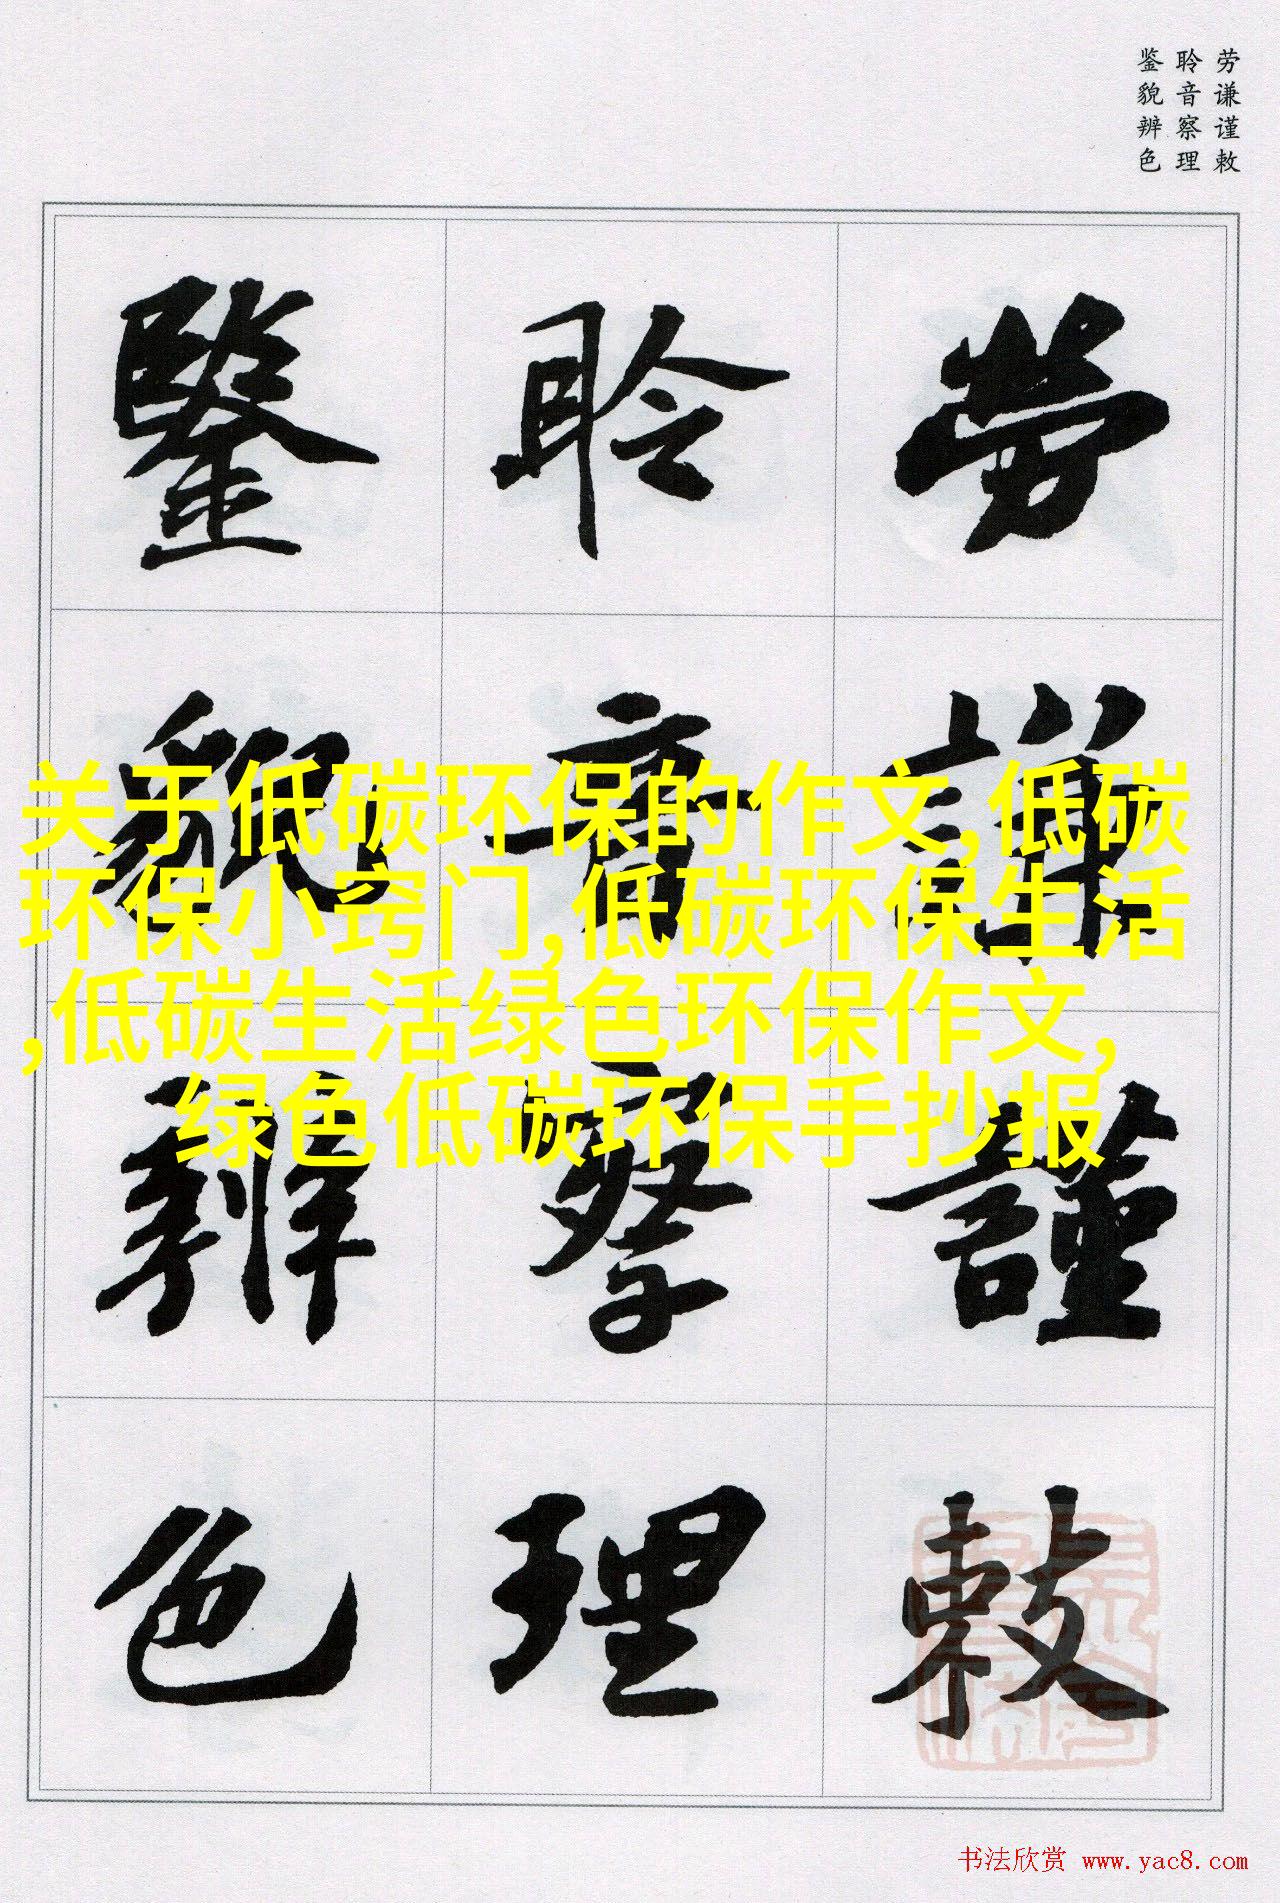 劳谦谨敕
聆音察理
鉴貌辨色
勞謙謹敕
聆音察理
鑒貌辨色
关于低碳环保的作文,低碳
环保小窍门,低碳环保生活
,低碳生活绿色环保作文,
绿色低碳环保手抄报
书法欣赏 www.yac8.com